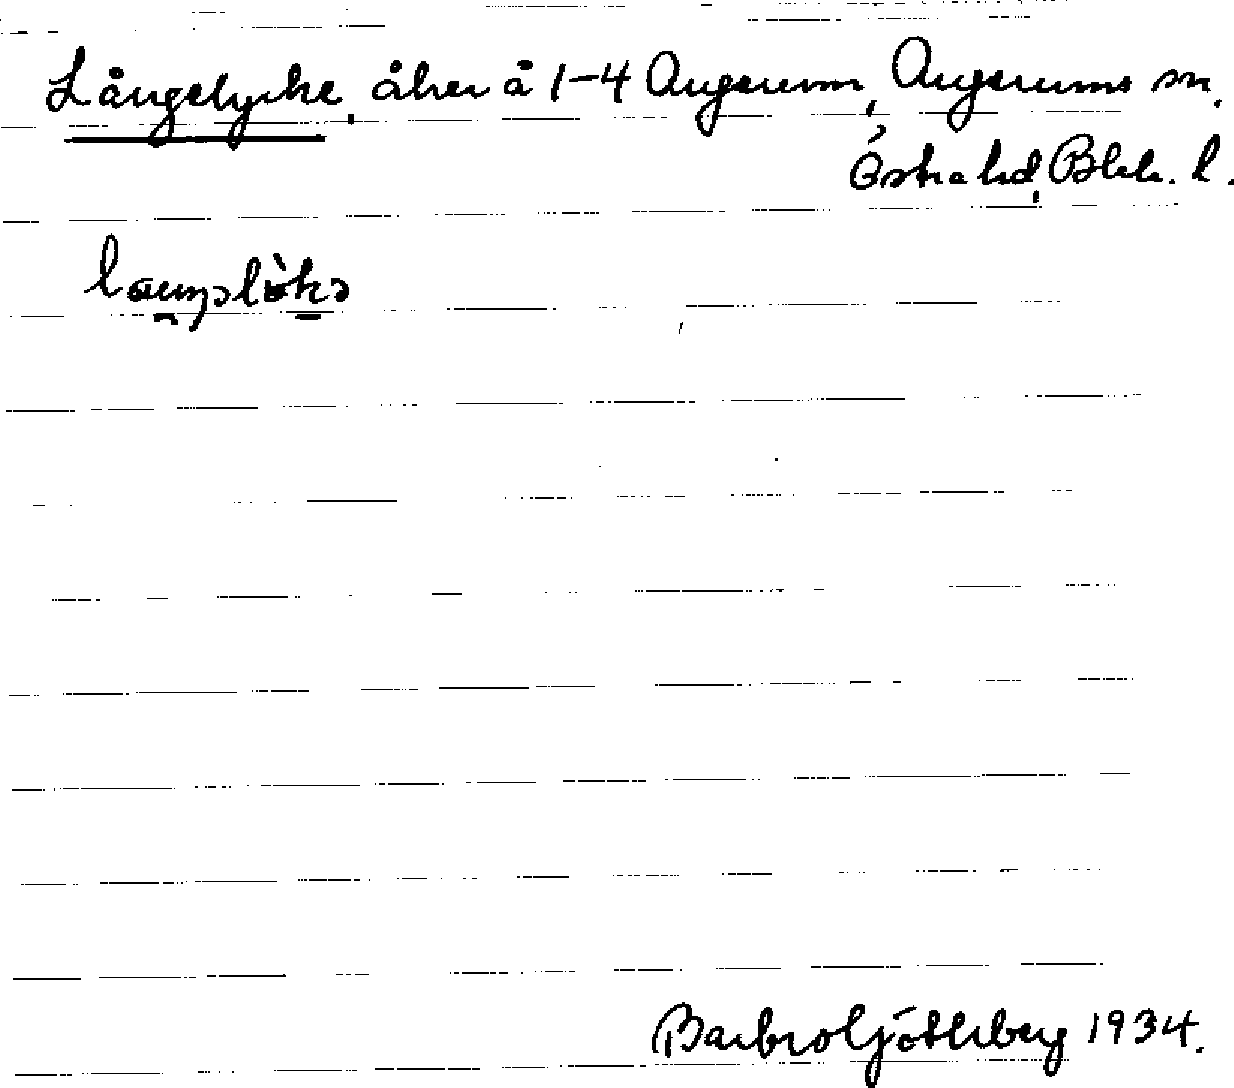 Långelycke, åker å 1-4 Augerum, Augerums sn,
Östra hd, Blek. l.
Barbro Götherberg 1934.